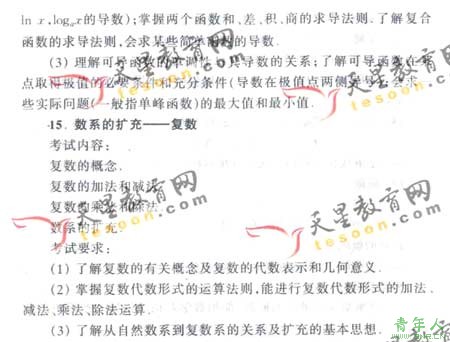 ln x、logₐx的导数);掌握两个函数和、差、积、商的求导法则.了解复合
函数的求导法则,会求某些简单函数的导数.
(3) 理解可导函数的单调性与其导数的关系;了解可导函数在某
点取得极值的必要条件和充分条件(导数在极值点两侧异号);会求一
些实际问题(一般指单峰函数)的最大值和最小值.
15. 数系的扩充——复数
考试内容:
复数的概念.
复数的加法和减法.
复数的乘法和除法.
数系的扩充.
考试要求:
(1) 了解复数的有关概念及复数的代数表示和几何意义.
(2) 掌握复数代数形式的运算法则,能进行复数代数形式的加法、
减法、乘法、除法运算.
(3) 了解从自然数系到复数系的关系及扩充的基本思想.
天星教育网
tesoon.com
天星教育网
tesoon.com
天星教育网
tesoon.com
天星教育网
tesoon.com
青年人